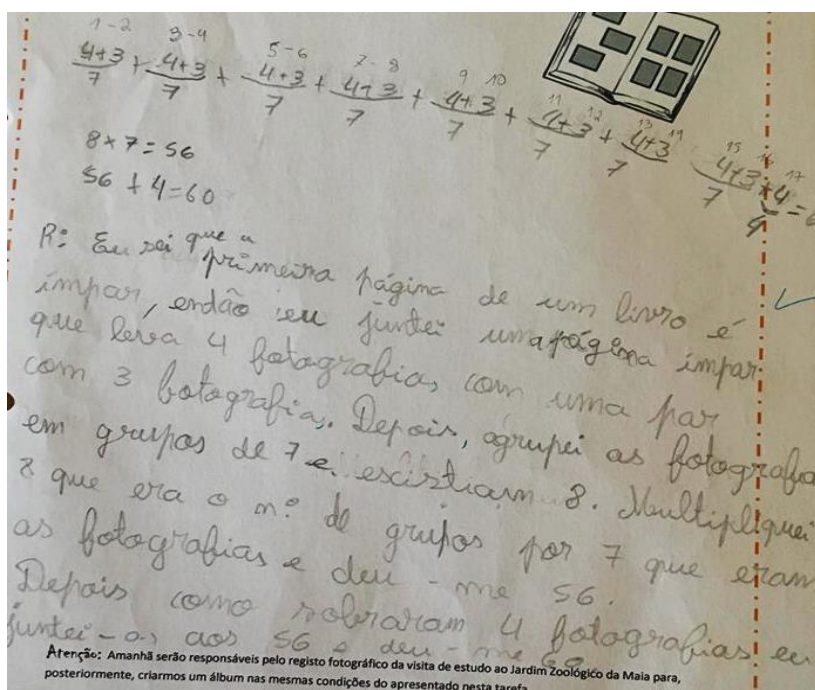 1-2 3-4 5-6 7-8 9 10 11 12 13 14 15 16 17
4+3 + 4+3 + 4+3 + 4+3 + 4+3 + 4+3 + 4+3 4+3 + 4 =
7 7 7 7 7 7 7 7 4
8 × 7 = 56
56 + 4 = 60
R: Eu sei que a primeira página de um livro é
impar, endão eu juntei uma página impar
que leva 4 fotografias, com uma par
com 3 fotografia. Depois, agrupei as fotografia
em grupos de 7 e escistiam 8. Multipliquei
8 que era o n.º de grupos por 7 que eram
as fotografias e deu-me 56.
Depois como sobraram 4 fotografias eu
juntei-as aos 56 e deu-me 60
Atenção: Amanhã serão responsáveis pelo registo fotográfico da visita de estudo ao Jardim Zoológico da Maia para,
posteriormente, criarmos um álbum nas mesmas condições do apresentado nesta tarefa.